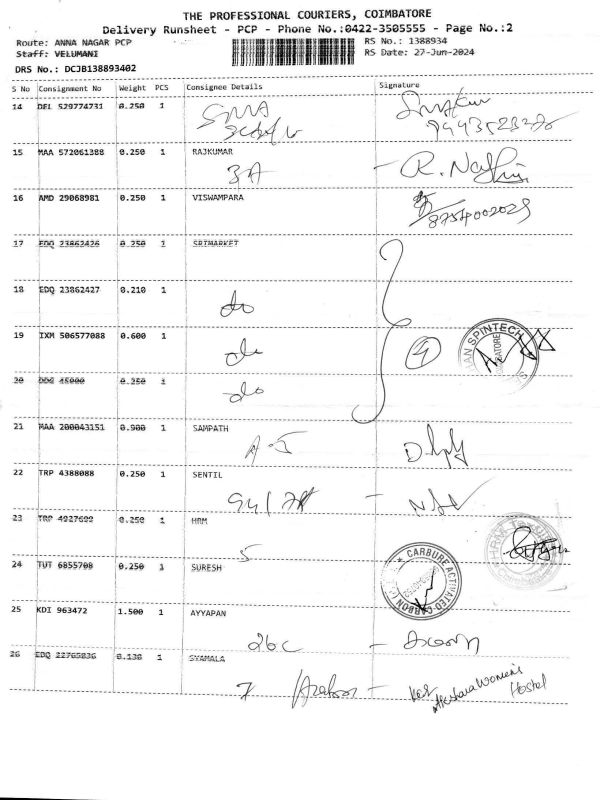 THE PROFESSIONAL COURIERS, COIMBATORE
Delivery Runsheet - PCP - Phone No.:0422-3505555 - Page No.:2
Route: ANNA NAGAR PCP RS No.: 1388934
Staff: VELUMANI RS Date: 27-Jun-2024
DRS No.: DCJB138893402
S No Consignment No Weight PCS Consignee Details Signature
14 DEL 529774731 0.250 1
15 MAA 572061388 0.250 1 RAJKUMAR
3A - R.
16 AMD 29068981 0.250 1 VISWAMPARA
8754002029
17 EDQ 23862426 0.250 1 SRIMARKET
18 EDQ 23862427 0.210 1
do
19 IXM 506577088 0.600 1
do 4
SPINTECH
20 45000 0.250 1
do
21 MAA 200043151 0.900 1 SAMPATH
22 TRP 4388088 0.250 1 SENTIL
23 TRP 4927699 0.250 1 HRM
5
24 TUT 6855708 0.250 1 SURESH
CARBURE ACTIVATED CARBON
25 KDI 963472 1.500 1 AYYAPAN
26 EDQ 22765836 0.130 1 SYAMALA
7 Akshara Women's
Hostel